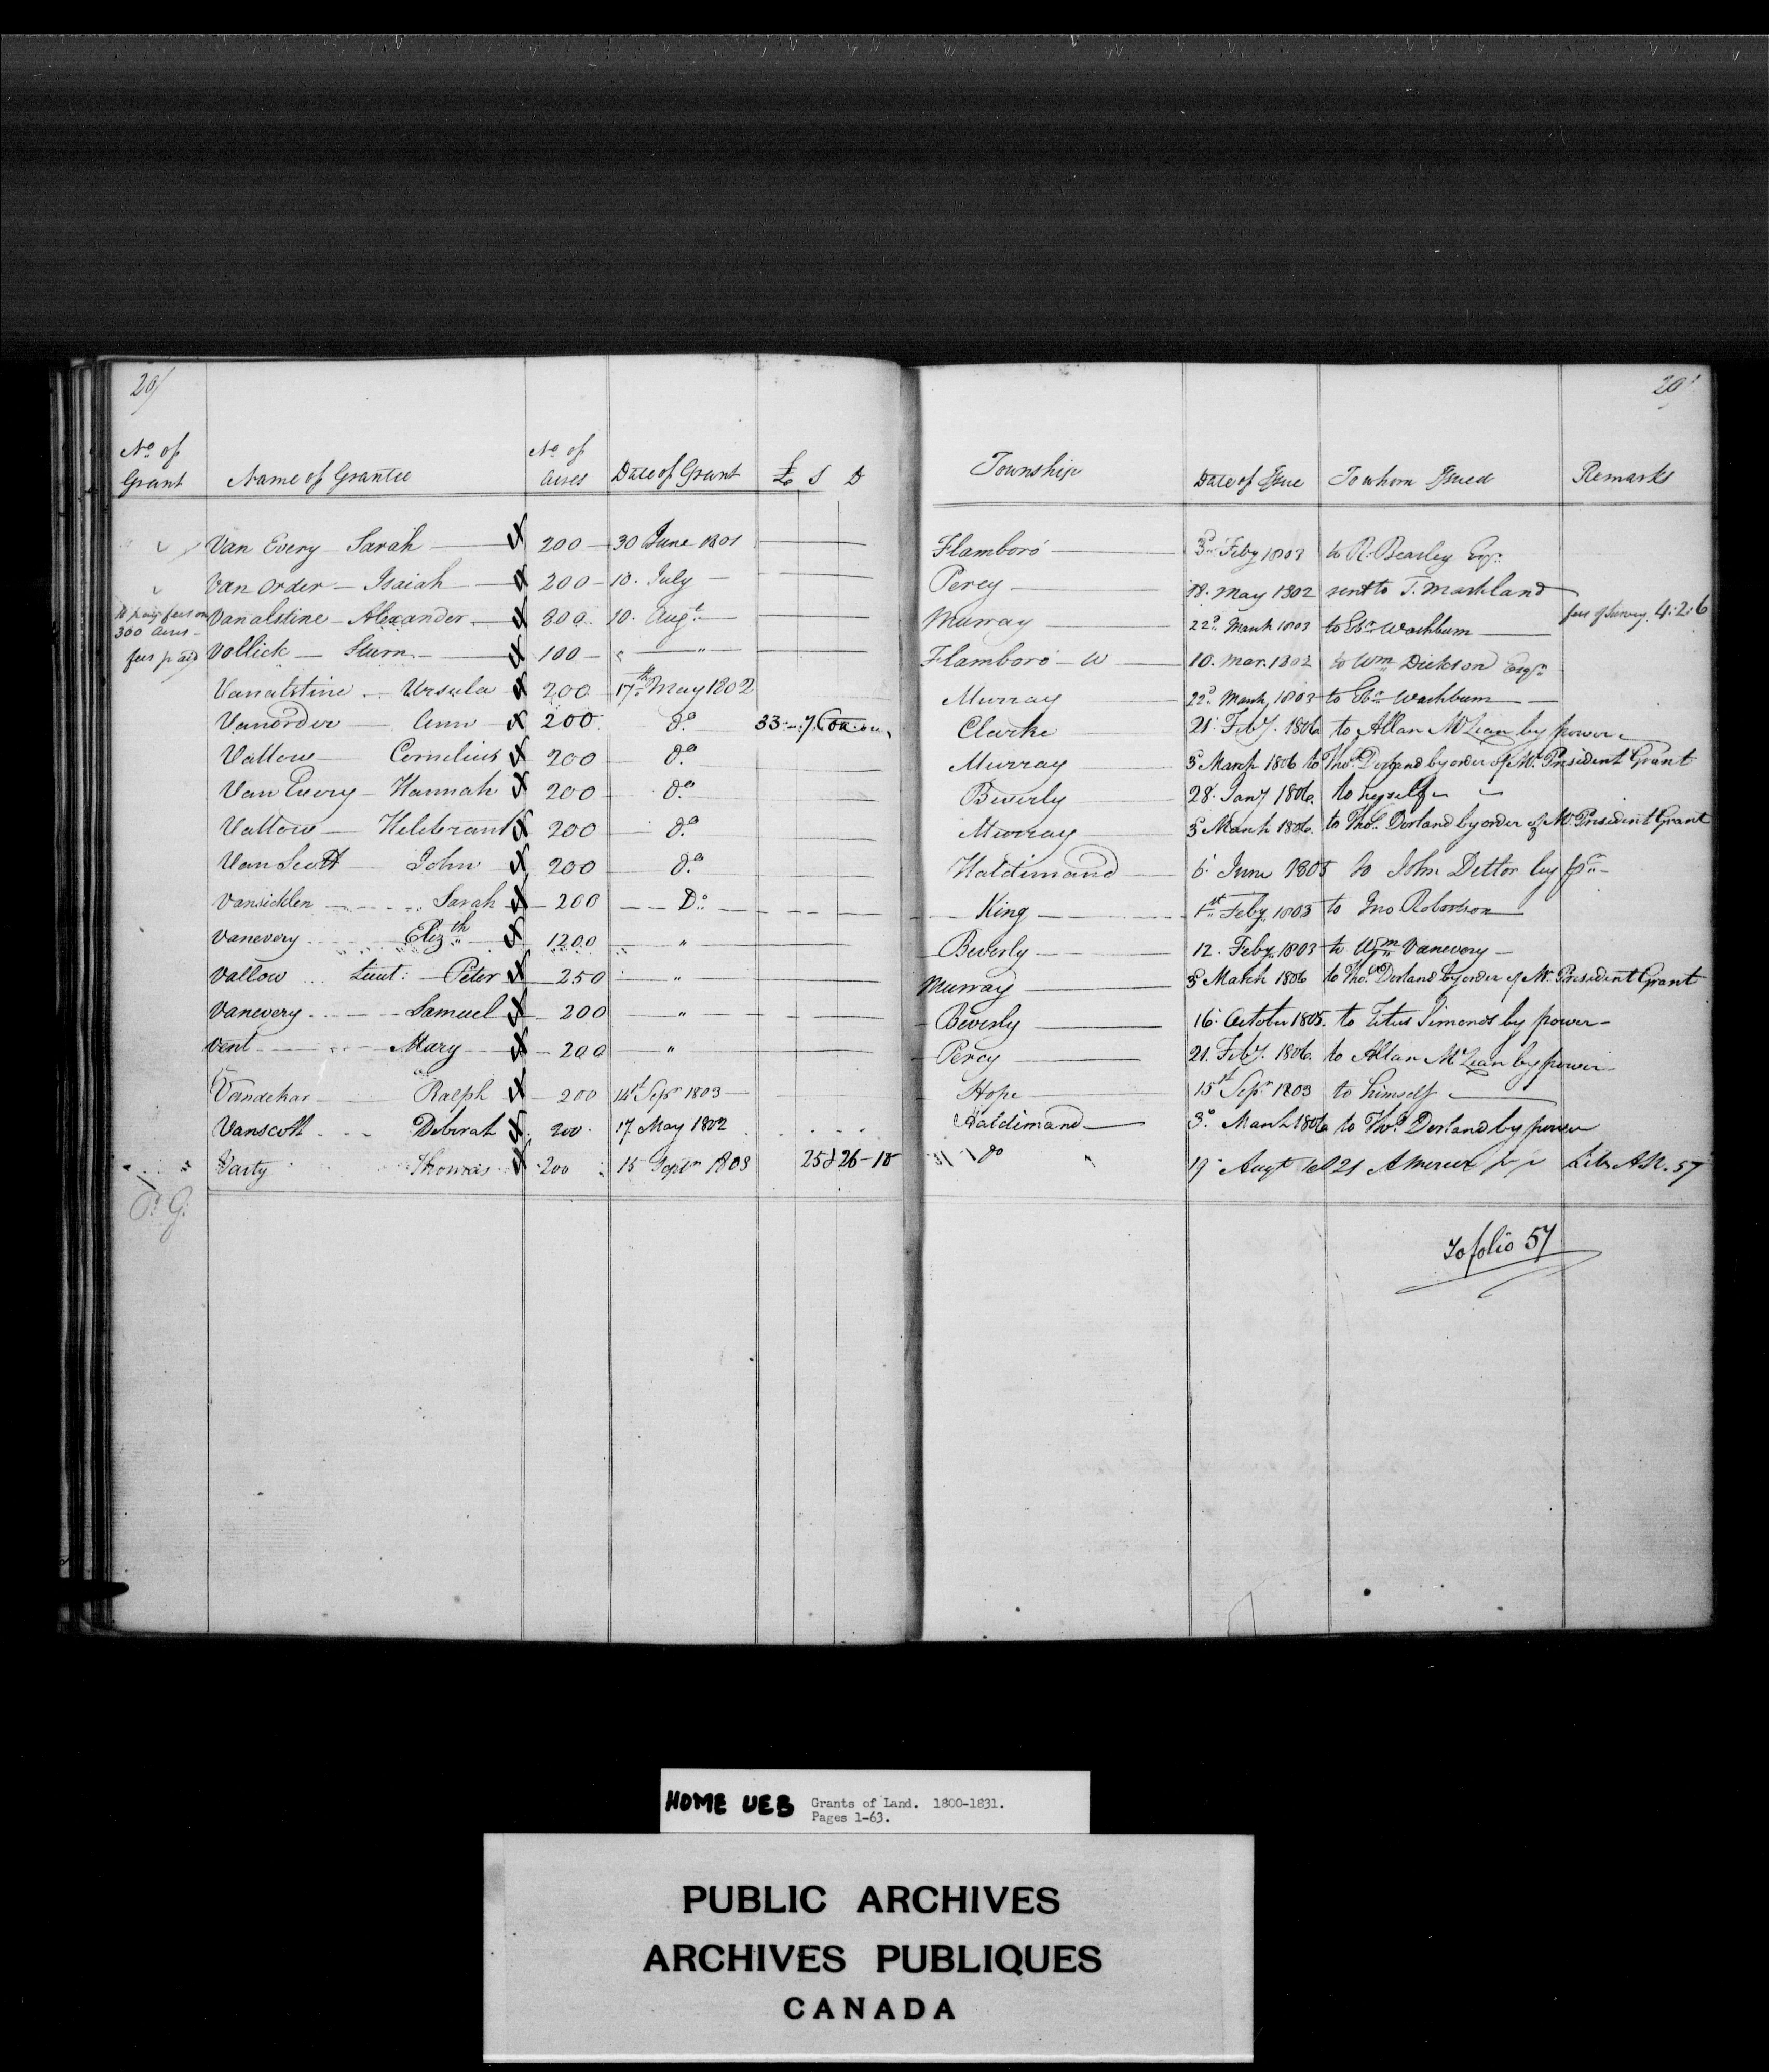 20/ 20/
No of Grant Name of Grantee No of Acres Date of Grant £ S D Township Date of Issue To whom Issued Remarks
Van Every Sarah 200 30 June 1801 Flamboro 3d Feby 1803 to R. Beasley Esqr
Van Order Isaiah 200 10. July Percy 18. May 1802 sent to T. Markland
to pay fees on 300 acres Vanalstine Alexander 800 10. Augt Murray 22d March 1803 to Ebr Washburn fees of Survey 4:2:6
fees paid Vollick Sturn 100 " Flamboro W 10. Mar. 1802 to Wm Dickson Esqr
Vanalstine Ursula 200 17th May 1802 Murray 22d March 1803 to Ebr Washburn
Vanorder Ann 200 do 33 7. Con Clarke 21. Feby. 1806 to Allan McLean by power
Vallow Cornelius 200 do Murray 3d March 1806 to Thos Dorland by order of Mr President Grant
Van Every Hannah 200 do Beverly 28. Jany 1806. to herself
Vallow Hilebrant 200 do Murray 3d March 1806. to Thos Dorland by order of Mr President Grant
Van Scott John 200 do Haldimand 6. June 1805 to John Dettor by pr
Vansicklen Sarah 200 Do King 1st Feby 1803 to Jno Robertson
Vanevery Elizth 1200 " Beverly 12. Feby 1803 to Wm Vanevery
Vallow Lieut: Peter 250 " Murray 3d March 1806 to Thos Dorland by order of Mr President Grant
Vanevery Samuel 200 " Beverly 16. October 1805. to Titus Simonds by power
Vent Mary 200 " Percy 21. Feby. 1806. to Allan McLean by power
Vandekar Ralph 200 14t Sepr 1803 Hope 15t Sepr 1803 to himself
Vanscott Deborah 200 17 May 1802 Haldimand 3d March 1806 to Thos Dorland by power
Varty Thomas 200 15 Septr 1803 25 & 26-10 do 19 Augt 1821 A Mercer Lib. AR. 57
P. G.
To folio 57
HOME UEB Grants of Land. 1800-1831.
Pages 1-63.
PUBLIC ARCHIVES
ARCHIVES PUBLIQUES
CANADA